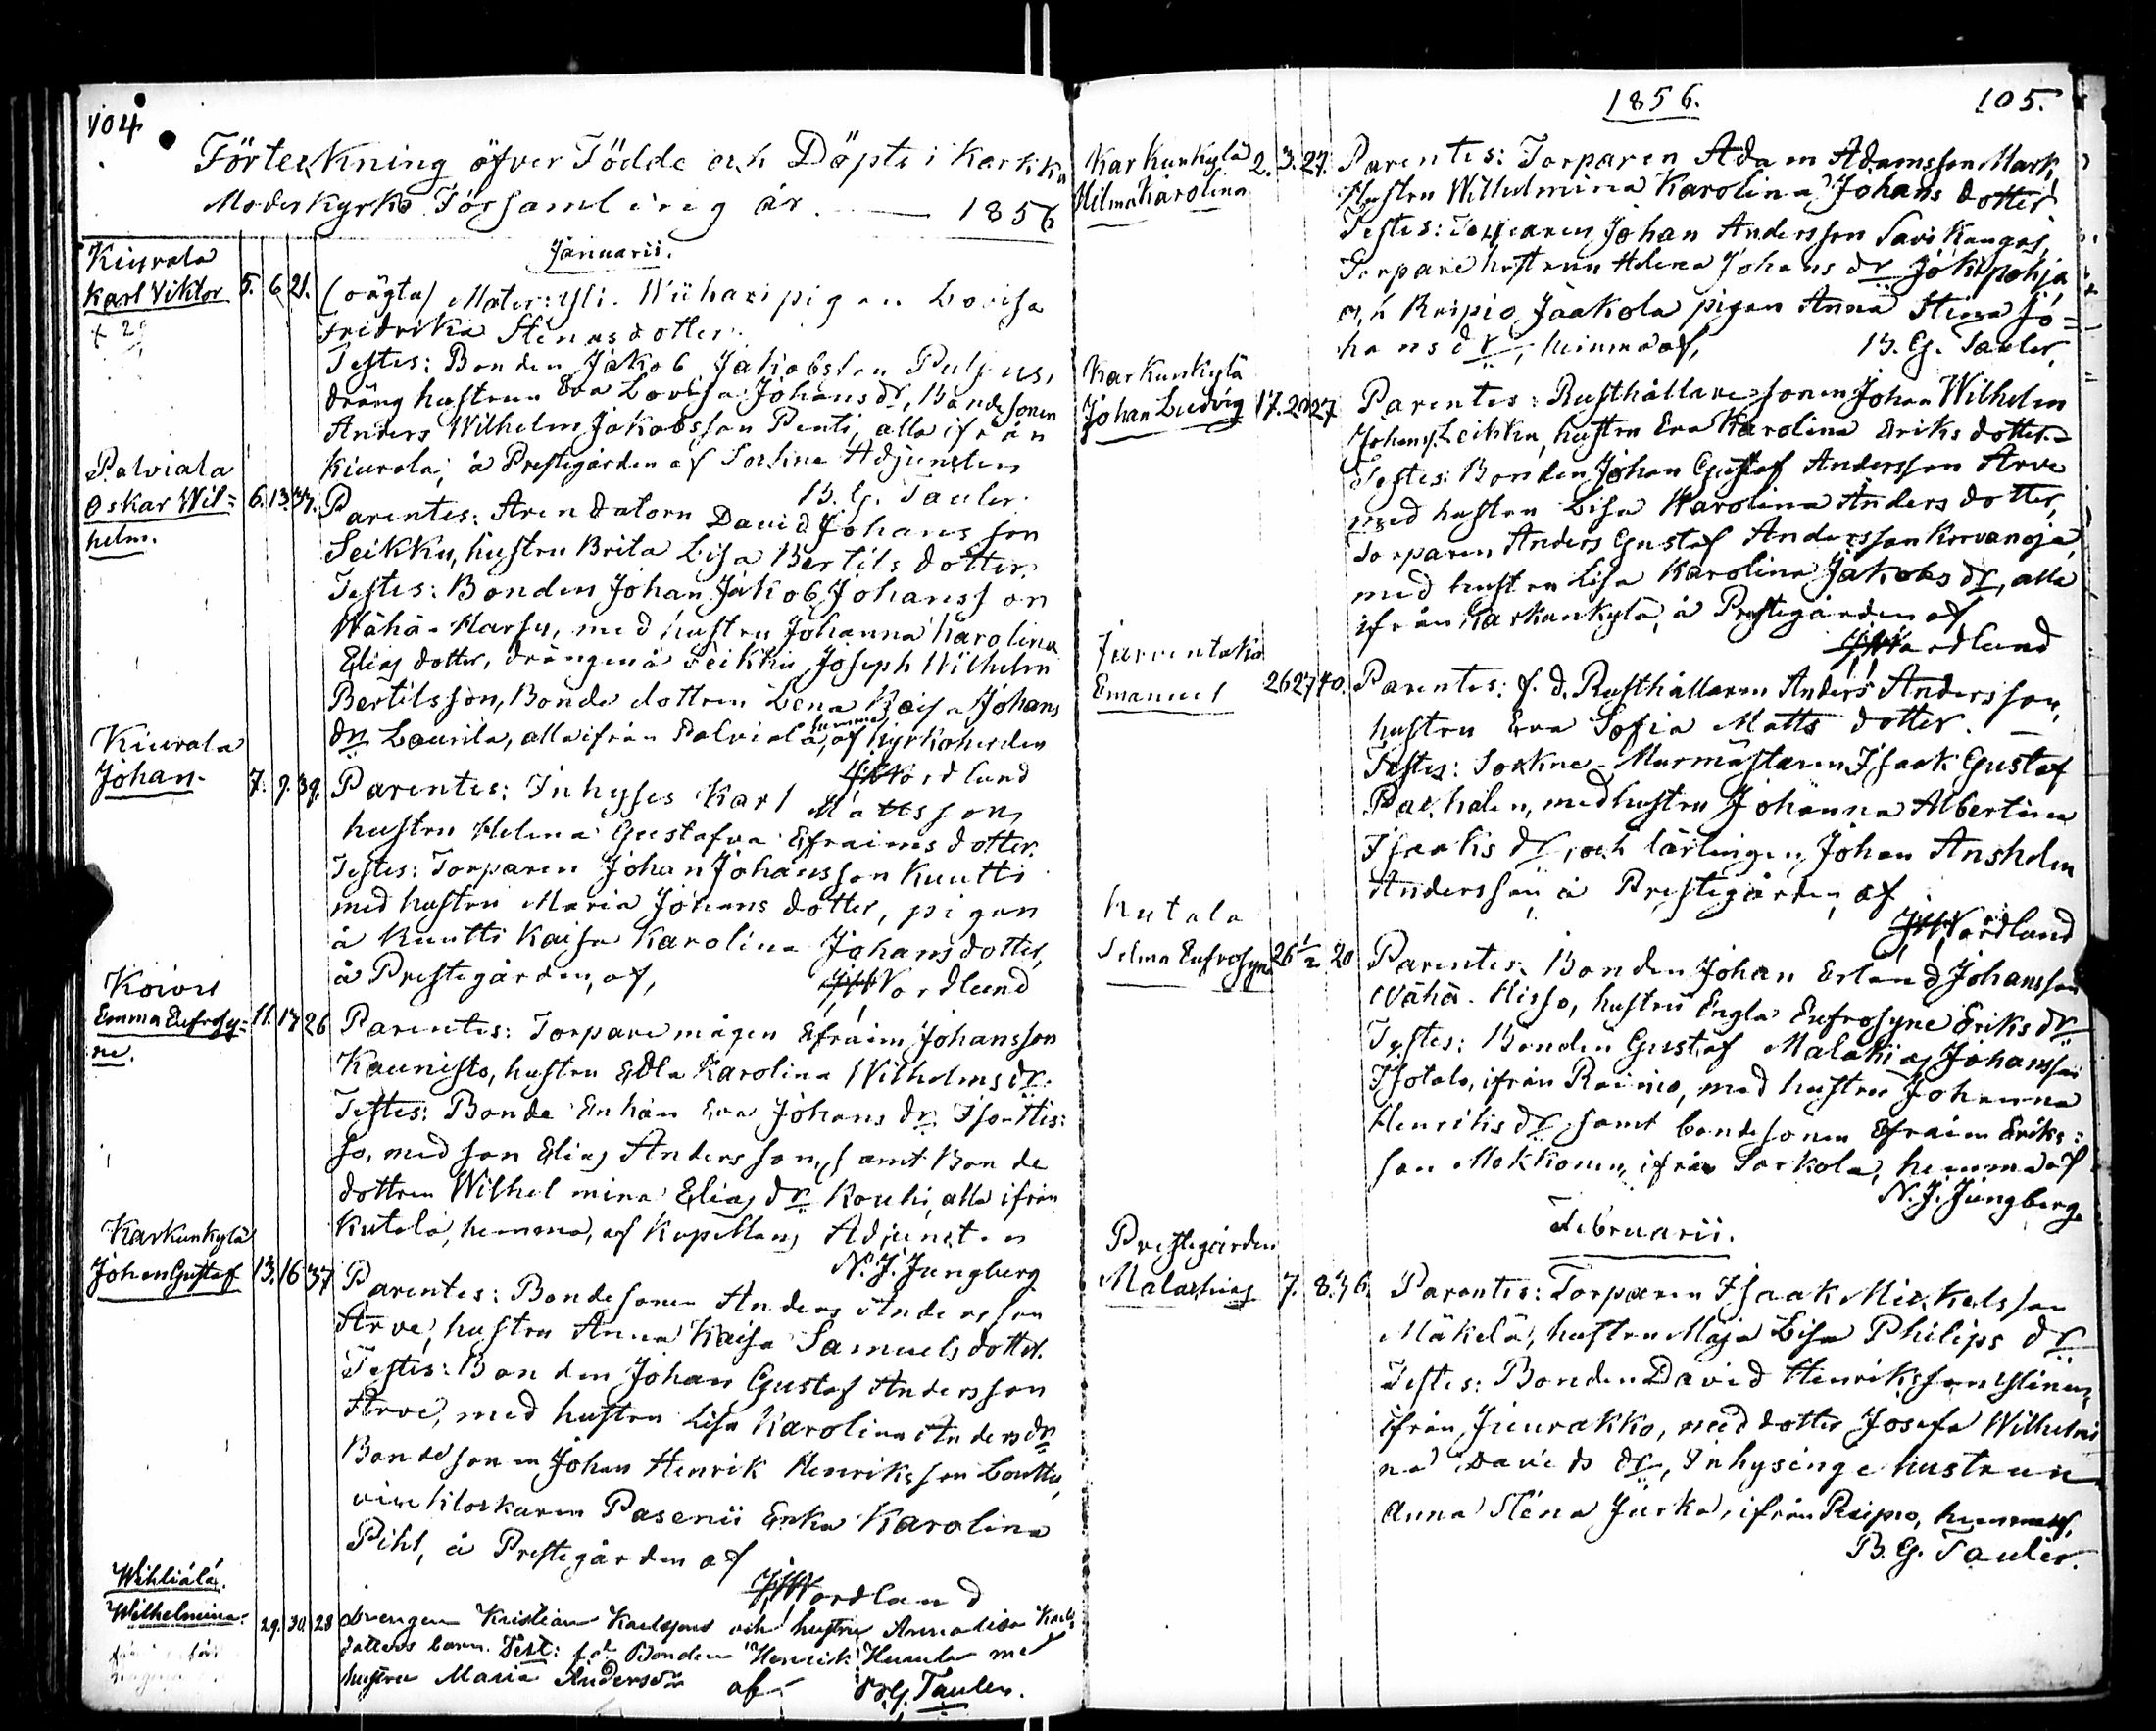 104
Förteckning öfver Födde och Döpte i Karkku
Moderkyrko Församling år — 1856
Januarii.
Kiurala
Karl Viktor 5. 6. 21. (oägta) Mater: Yli- Wiihari pigan Lovisa
Fridrika Stenusdotter.
Testes: Bonden Jakob Jakobsson Puljus,
dräng hustrun Eva Lovisa Johans dr, Bonde sonen
Anders Wilhelm Jakobsson Penti, alla ifrån
Kiurala, å Prestegården af Sockne Adjunkten
B. G. Tauler.
Palviala
Oskar Wil=
helm.
6. 13. 37. Parentes: Arendatorn David Johansson
Seikku, hustru Brita Lisa Bertils dotter.
Testes: Bonden Johan Jakob Johansson
Wähä-Marsu, med hustru Johanna Karolina
Elias dotter, drängen å Seikku Joseph Wilhelm
Bertilsson, Bonde dottren Lena Kaisa Johans
dr Laurila, alla ifrån Palviala, hemma, af Kyrkoherden
JWNordlund
Kiurala
Johan. 7. 9. 39. Parentes: Inhyses Karl Mattsson
hustru Helena Gustafva Efraims dotter.
Testes: Torparen Johan Johansson Kuutti
med hustru Maria Johans dotter, pigan
å Kuutti Kaisa Karolina Johansdotter,
å Prestegården, af,
JWNordlund
Koivu
Emma Eufrosy=
ne.
11. 17 26 Parentes: Torpare mågen Efraim Johansson
Kaunisto, hustru Edla Karolina Wilhelms dr.
Testes: Bonde Enkan Eva Johans dr Iso His:
so, med son Elias Andersson, samt Bonde
dottren Wilhelmina Elias dr Kouhi, alla ifrån
Kutala, hemma, af Kapellans Adjuncten
N. J. Jungberg
Karkunkylä
Johan Gustaf 13. 16 37 Parentes: Bonde sonen Anders Andersson
Arve, hustru Anna Kaisa Samuels dotter.
Testes: Bonden Johan Gustaf Andersson
Arve, med hustru Lisa Karolina Anders dr
Bonde sonen Johan Henrik Henriksson Lauttu,
vice Klockaren Pasenii Enka Karolina
Pihl, å Prestegården af
JWNordlund
Wihliälä.
Wilhelmina. 29. 30. 28 drengen Kristian Karlssons och hustru Annalisa Karls
dotters barn. Test: f.d. Bonden Henrik Huunla med
hustru Maria Andersdr af BG. Tauler.
1856. 105.
Karkunkylä
Hilma Karolina
2. 3. 27. Parentes: Torparen Adam Adamsson Mark,
Hustru Wilhelmina Karolina Johans dotter
Testes: Torparen Johan Andersson Savikangas,
Torpare hustrun Helena Johans dr Jokipohja
och Reipio Jaakola pigan Anna Stina Jo=
hans dr, hemma af,
B. G. Tauler.
Karkunkylä
Johan Ludvig 17. 20 27 Parentes: Rusthållare sonen Johan Wilhelm
Johans. Leikku, hustru Eva Karolina Eriks dotter.
Testes: Bonden Johan Gustaf Andersson Arve
med hustru Lisa Karolina Anders dotter,
Torparen Anders Gustaf Andersson Korvanoja,
med hustru Lisa Karolina Jakobs dr, alla
ifrån Karkunkylä, å Prestegården af
JWNordlund
Jarventaka
Emanuel 26 27 40. Parentes: f. d. Rusthållaren Anders Andersson,
hustru Eva Sofia Matts dotter. —
Testes: Sockne-Murmästaren Isaak Gustaf
Pachalen, med hustru Johanna Albertina
Isaaks dr, och lärlingen Johan Anshelm
Andersson å Prestegården, af
JWNordlund
Kutala
Selma Eufrosyne 26 1/2 20 Parentes: Bonden Johan Erland Johansson
Wähä-Hisso, hustru Engla Eufrosyne Eriks dr
Testes: Bonden Gustaf Malakias Johansson
Isotalo, ifrån Roinio, med hustru Johanna
Henriks dr samt bondesonen Efraim Eriks:
son Mokkonen, ifrån Sarkola, hemma af
N. J. Jungberg.
Februarii.
Prestegården
Malachias 7. 8. 36 Parentes: Torparen Isaak Mickelsson
Mäkelä, hustru Maja Lisa Philips dr
Testes: Bonden David Henriksson Ylinen,
ifrån Juurakko, med dotter Josefa Wilhelmi
na Davids dr, Inhysinge hustrun
Anna Stena Jurka, ifrån Reipio, hemma af,
B. G. Tauler.